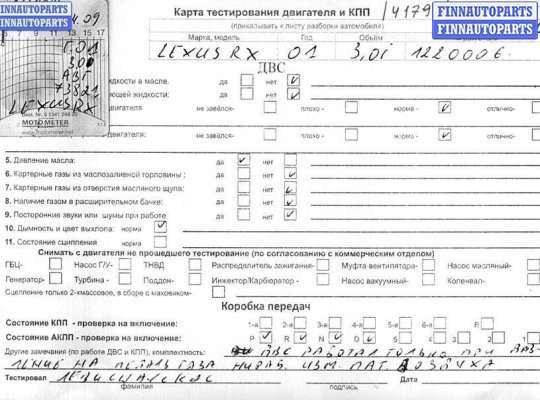 FINNAUTOPARTS
FINNAUTOPARTS
FINNAUTOPARTS
FINNAUTOPARTS
Карта тестирования двигателя и КПП
(прикалывать к листу разборки автомобиля)
Марка, модель Год Объём
LEXUS RX 01 3,0i 1220006
ДВС
идкости в масле. да нет
ющей жидкости: да нет
вигателя не завёлся- плохо - норма - отлично-
двигателя: не завёлся- плохо - норма - отлично-
5. Давление масла: да нет
6. Картерные газы из маслозаливной горловины ; да нет
7. Картерные газы из отверстия масляного щупа: да нет
8. Наличие газов в расширительном бачке: да нет
9. Посторонние звуки или шумы при работе да нет
10. Дымность и цвет выхлопа: норма
11. Состояние сцепления норма
Снимать с двигателя не прошедшего тестирование (по согласованию с коммерческим отделом)
ГБЦ- Насос Г/У- ТНВД Распределитель зажигание- Муфта вентилятора- Насос масляный-
Генератор- Турбина - Поддон- Инжектор/Карбюратор - Насос вакуумный- Коленвал-
Сцепление только 2-хмассовое, в сборе с маховиком-
Коробка передач
Состояние КПП - проверка на включение: 1-я 2-я 3-я 4-я 5-я 6-я R
Состояние АКПП - проверка на включение: P R N D S
Другие замечания (по работе ДВС и КПП), комплектность: ДВС работал только при дав-
ление на педаль газа
Тестировал Дата
фамилия подпись
LEXUS RX
MOTOMETER
www.motometer.net